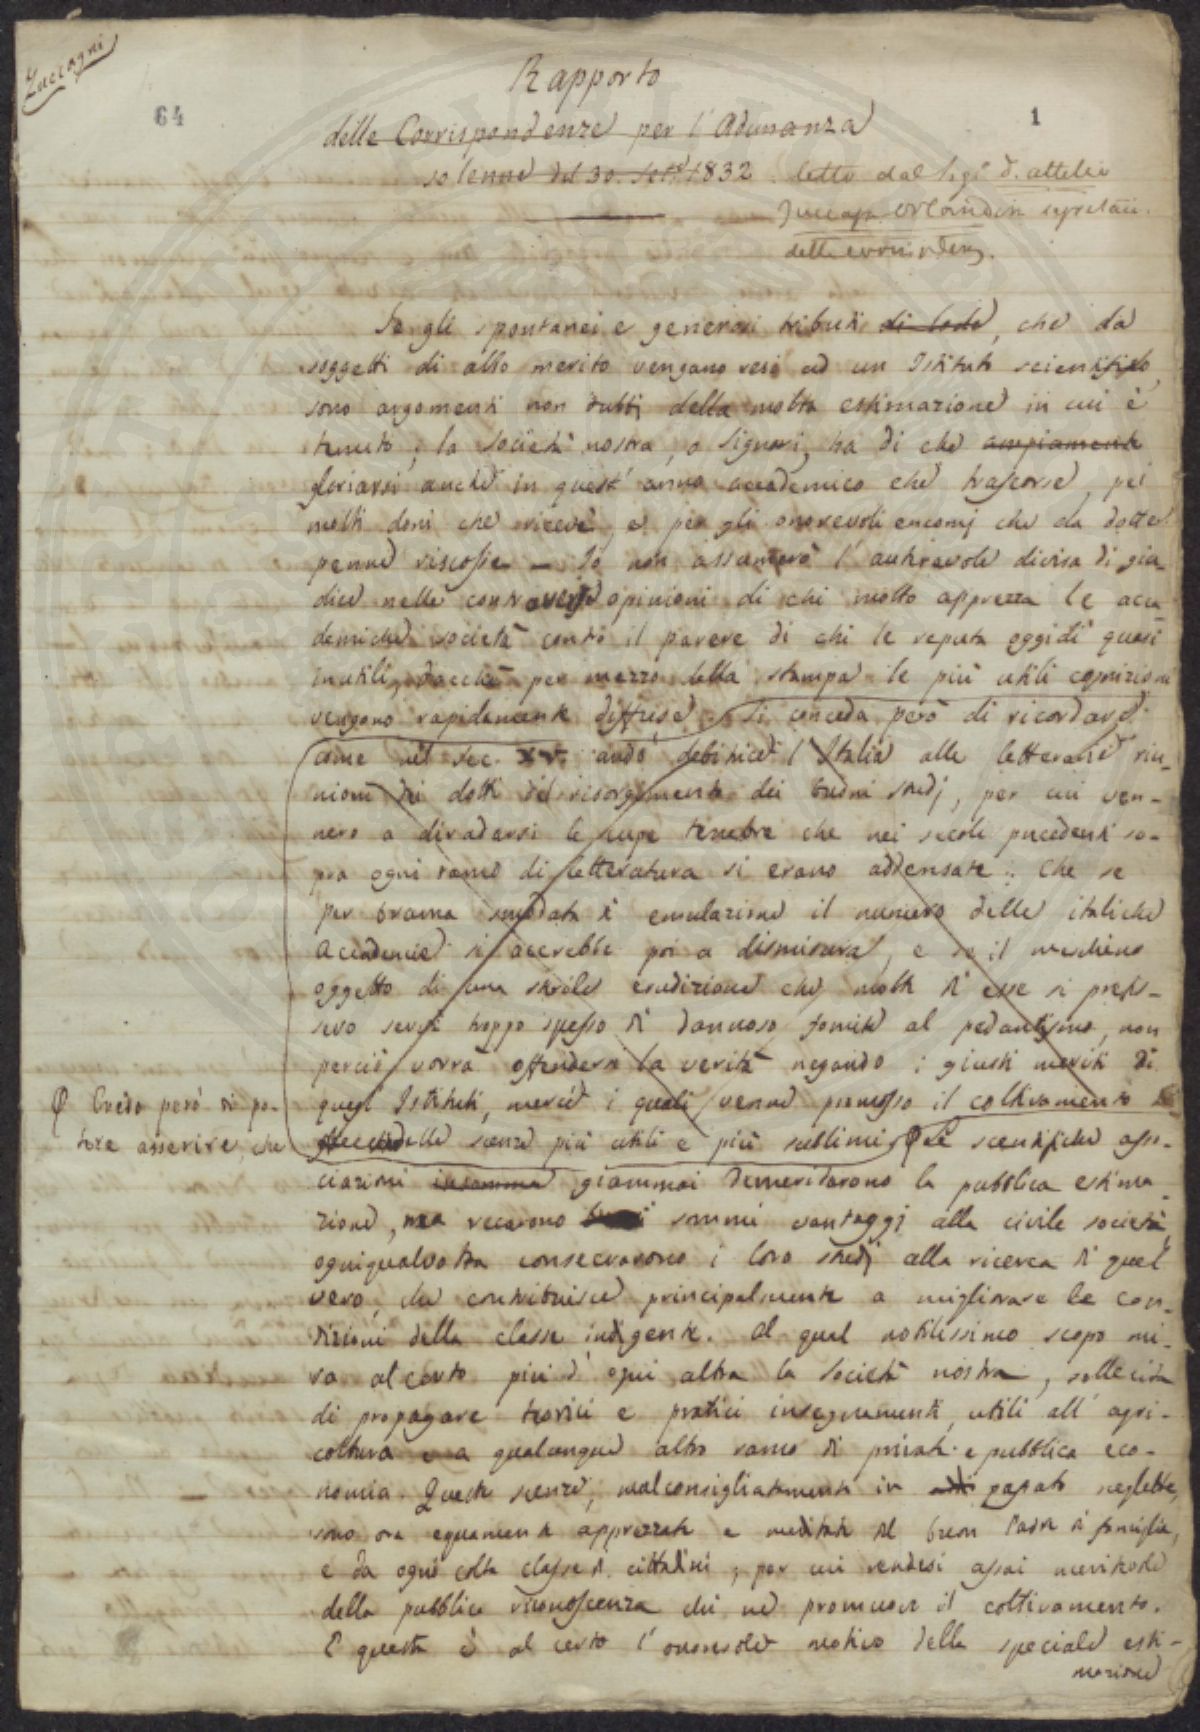 Zuccagni
64
1
Rapporto
delle Corrispondenze per l'Adunanza
solenne del 30. Sett. 1832 letto dal Sigr. D. Attilio
Zuccagn. Orlandini segretario
delle corrispdenz.
Se gli spontanei e generosi tributi di lode, che da
soggetti di alto merito vengano resi ad un Istituto scientifico,
sono argomenti non dubbj della molta estimazione in cui è
tenuto, la Società nostra, o Signori, ha di che ampiamente
gloriarsi anche in quest'anno accademico che trascorse, pei
molti doni che riceve, e per gli onorevoli encomj che da dotte
penne riscosse — Io non assumerò l'autorevole divisa di giu-
dice nelle controverse opinioni di chi molto apprezza le acca-
demiche società contro il parere di chi le reputa oggidì quasi
inutili, dacchè per mezzo della stampa le più utili cognizioni
vengono rapidamente diffuse. Si conceda però di ricordare
come nel sec. XV. andò debitrice l'Italia alle letterarie riu-
nioni dei dotti del risorgimento dei buoni studj, per cui ven-
nero a diradarsi le cupe tenebre che nei secoli precedenti so-
pra ogni ramo di letteratura si erano addensate: che se
per brama smodata di emulazione il numero delle italiche
Accademie si accrebbe poi a dismisura, e se il meschino
oggetto di una sterile erudizione che molte di esse si prefis-
sero servì troppo spesso di dannoso fomite al pedantismo, non
perciò vorrà offendersi la verità negando i giusti meriti di
quegl'Istituti, mercè i quali venne promosso il coltivamento
delle scienze più utili e più sublimi. Φ Le scientifiche asso-
Φ Credo però di po-
tere asserire, che
ciazioni insomma giammai demeritarono la pubblica estima-
zione, ma recarono sommi vantaggj alla civile società,
ogniqualvolta consecrarono i loro studj alla ricerca di quel
vero, che contribuisce principalmente a migliorare le con-
dizioni della classe indigente. Al qual nobilissimo scopo mi-
ra al certo più d'ogni altra la Società nostra, sollecita
di propagare teorici e pratici insegnamenti utili all'agri-
coltura e a qualunque altro ramo di privata e pubblica eco-
nomia. Queste scienze, malconsigliatamente in passato neglette,
sono ora egualmente apprezzate e meditate dal buon Padre di famiglia,
e da ogni colta classe di cittadini; per cui rendesi assai meritevole
della pubblica riconoscenza chi ne promuove il coltivamento.
E questo è al certo l'onorevole motivo della speciale esti-
mazione